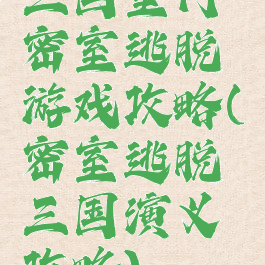 三国堂门
密室逃脱
游戏攻略(
密室逃脱
三国演义
攻略)